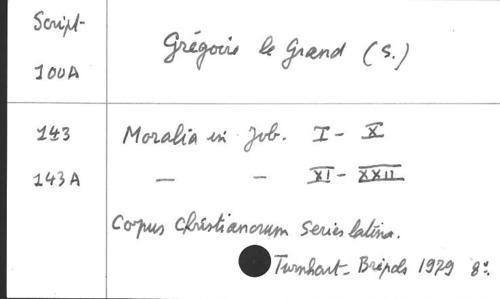 Script-
100A
Grégoire le Grand (S.)
143 Moralia in Job. I - X
143A — — XI - XXII
Corpus Christianorum Series latina.
Turnhout - Brépols 1979 8°.